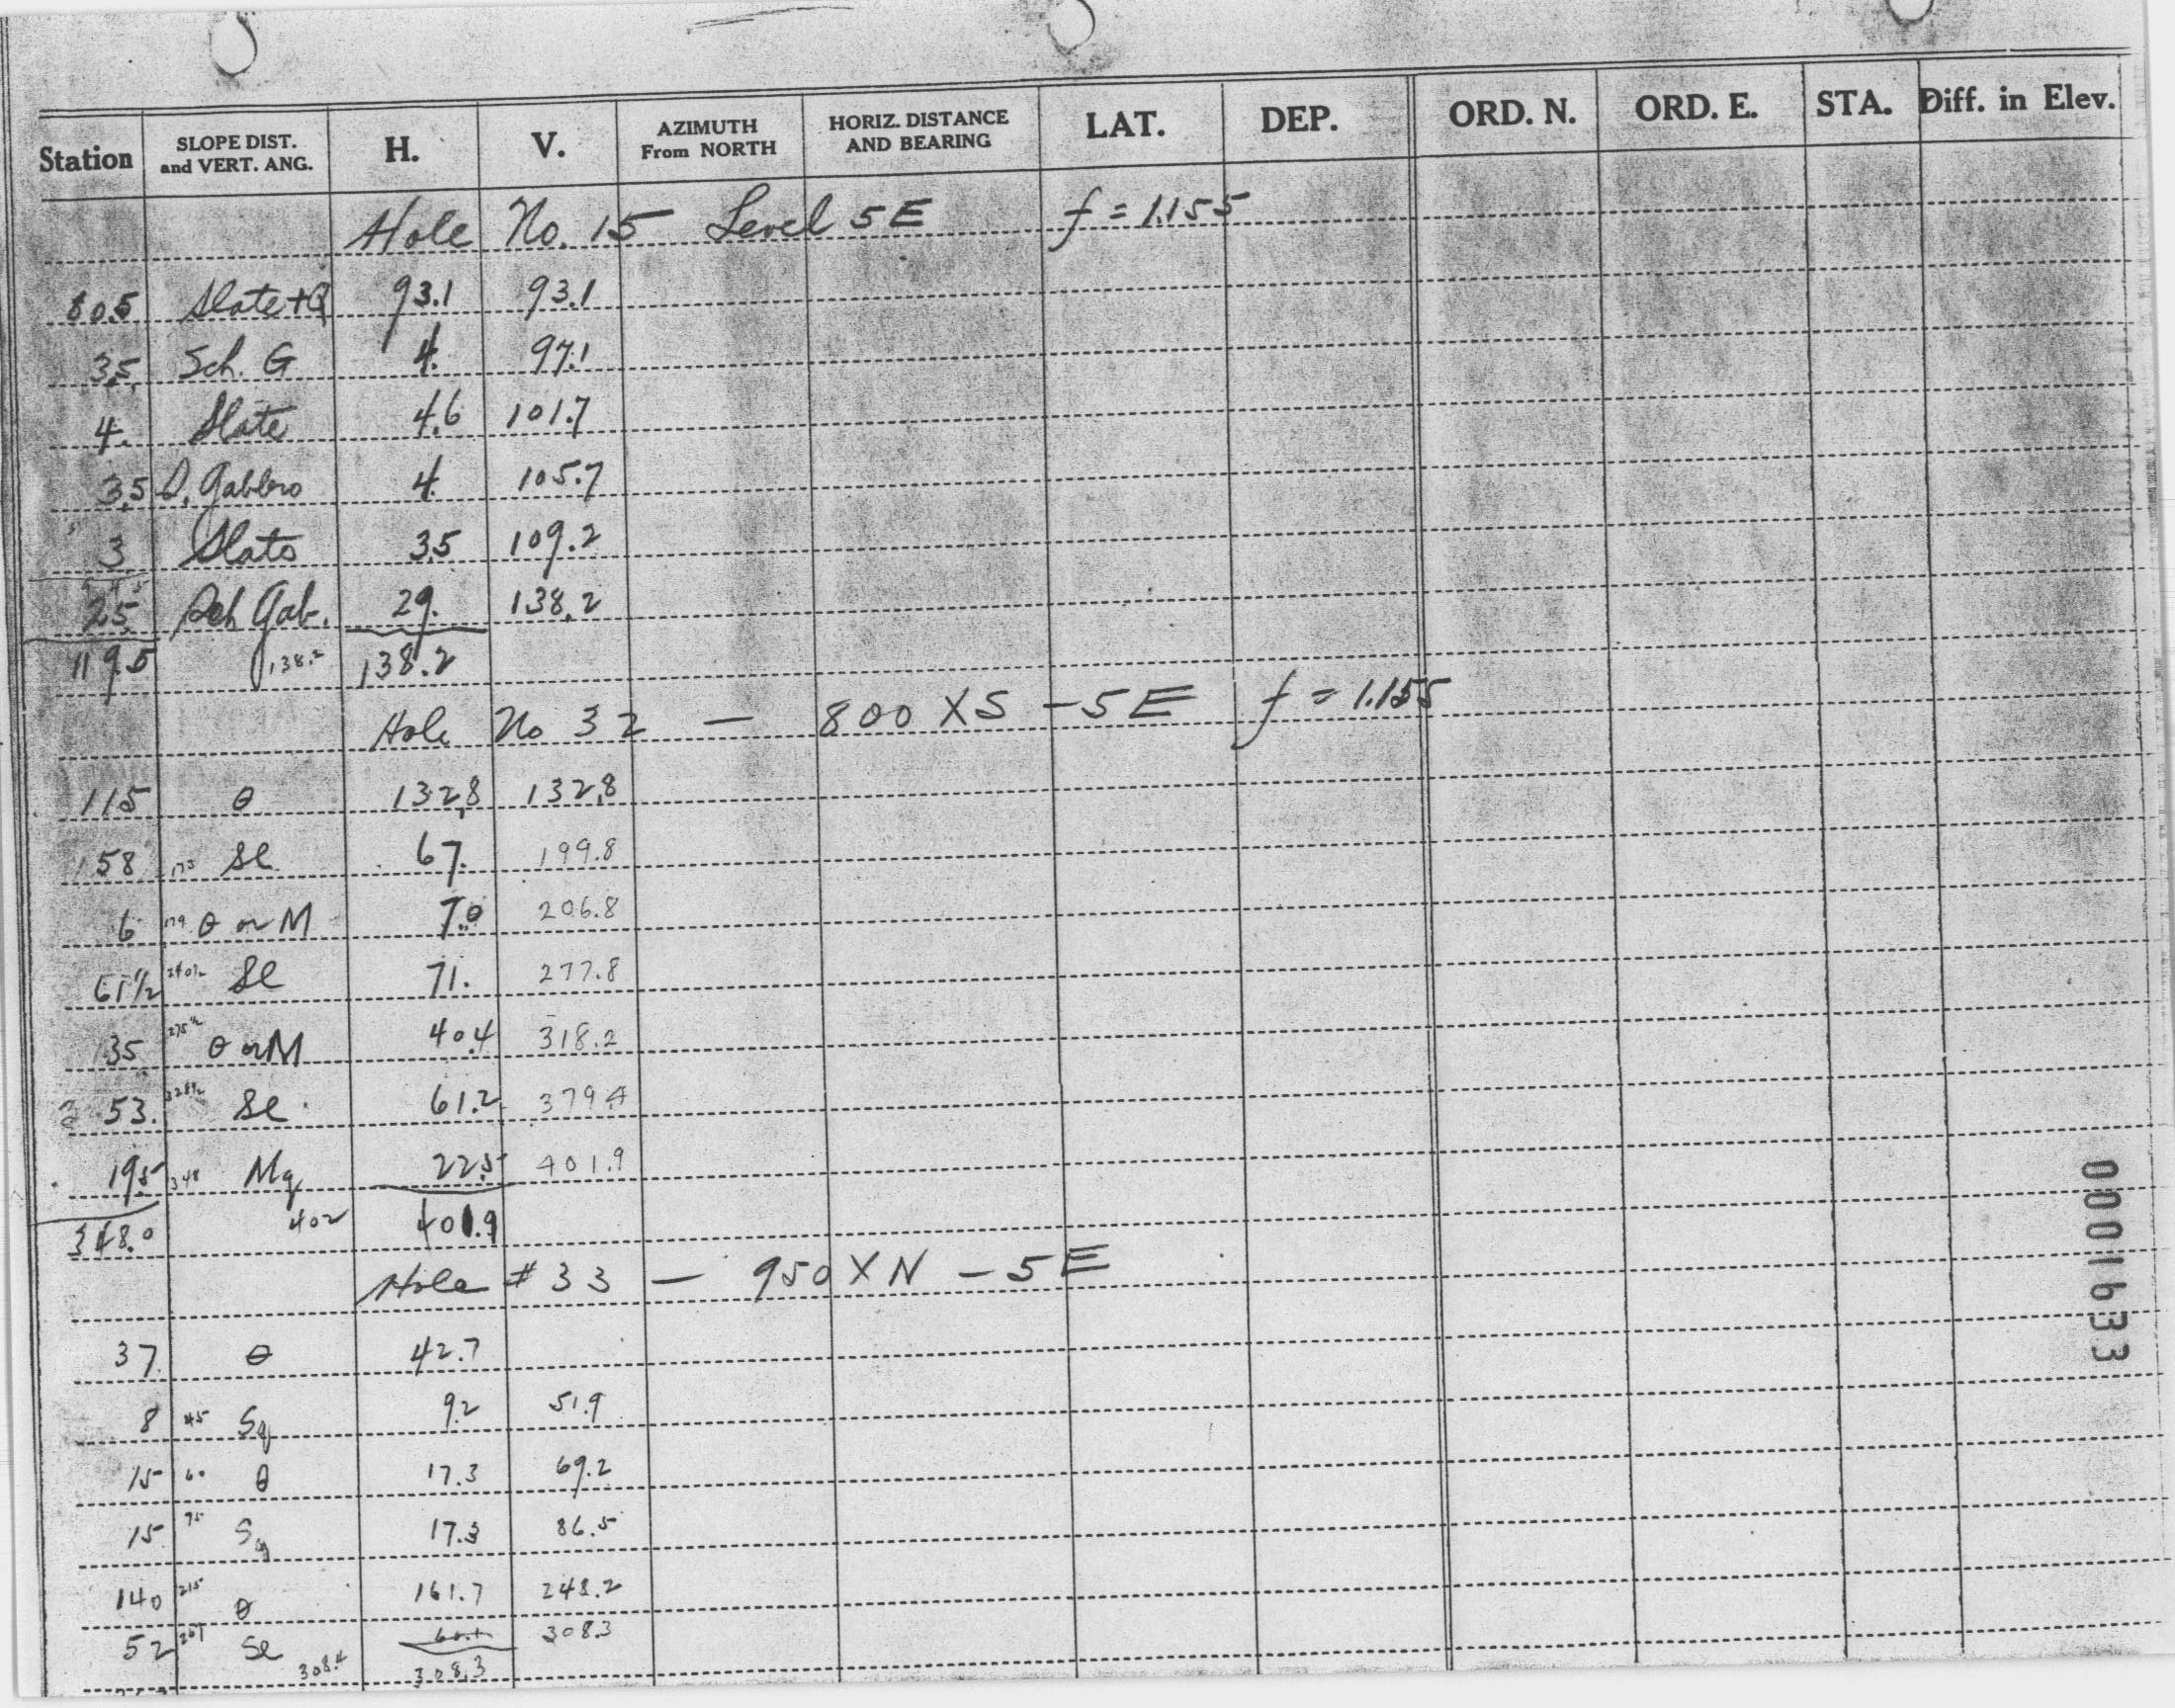 Station SLOPE DIST. and VERT. ANG. H. V. AZIMUTH From NORTH HORIZ. DISTANCE AND BEARING LAT. DEP. ORD. N. ORD. E. STA. Diff. in Elev.
Hole No. 15 Level 5E f = 1.155
80.5 Slate+Q 93.1 93.1
3.5 Sch. G 4. 97.1
4. Slate 4.6 101.7
3.5 S. Gabbro 4. 105.7
3. Slate 3.5 109.2
25. Sch Gab. 29. 138.2
119.5 138.2 138.2
Hole No 32 — 800 X S - 5E f = 1.155
115 θ 132.8 132.8
58 173 Sl 67. 199.8
6 179 θ or M 7.0 206.8
61 1/2 240 1/2 Sl 71. 277.8
35 275 1/2 θ or M 40.4 318.2
53. 328 1/2 Sl 61.2 379.4
19.5 348 Mq 22.5 401.9
348.0 402 401.9
Hole # 33 — 950 X N - 5E
37. θ 42.7
8 45 Sq 9.2 51.9
15 60 θ 17.3 69.2
15 75 Sq 17.3 86.5
140 215 θ 161.7 248.2
52 267 Sl 60.1 308.3
308.4 308.3
0001633